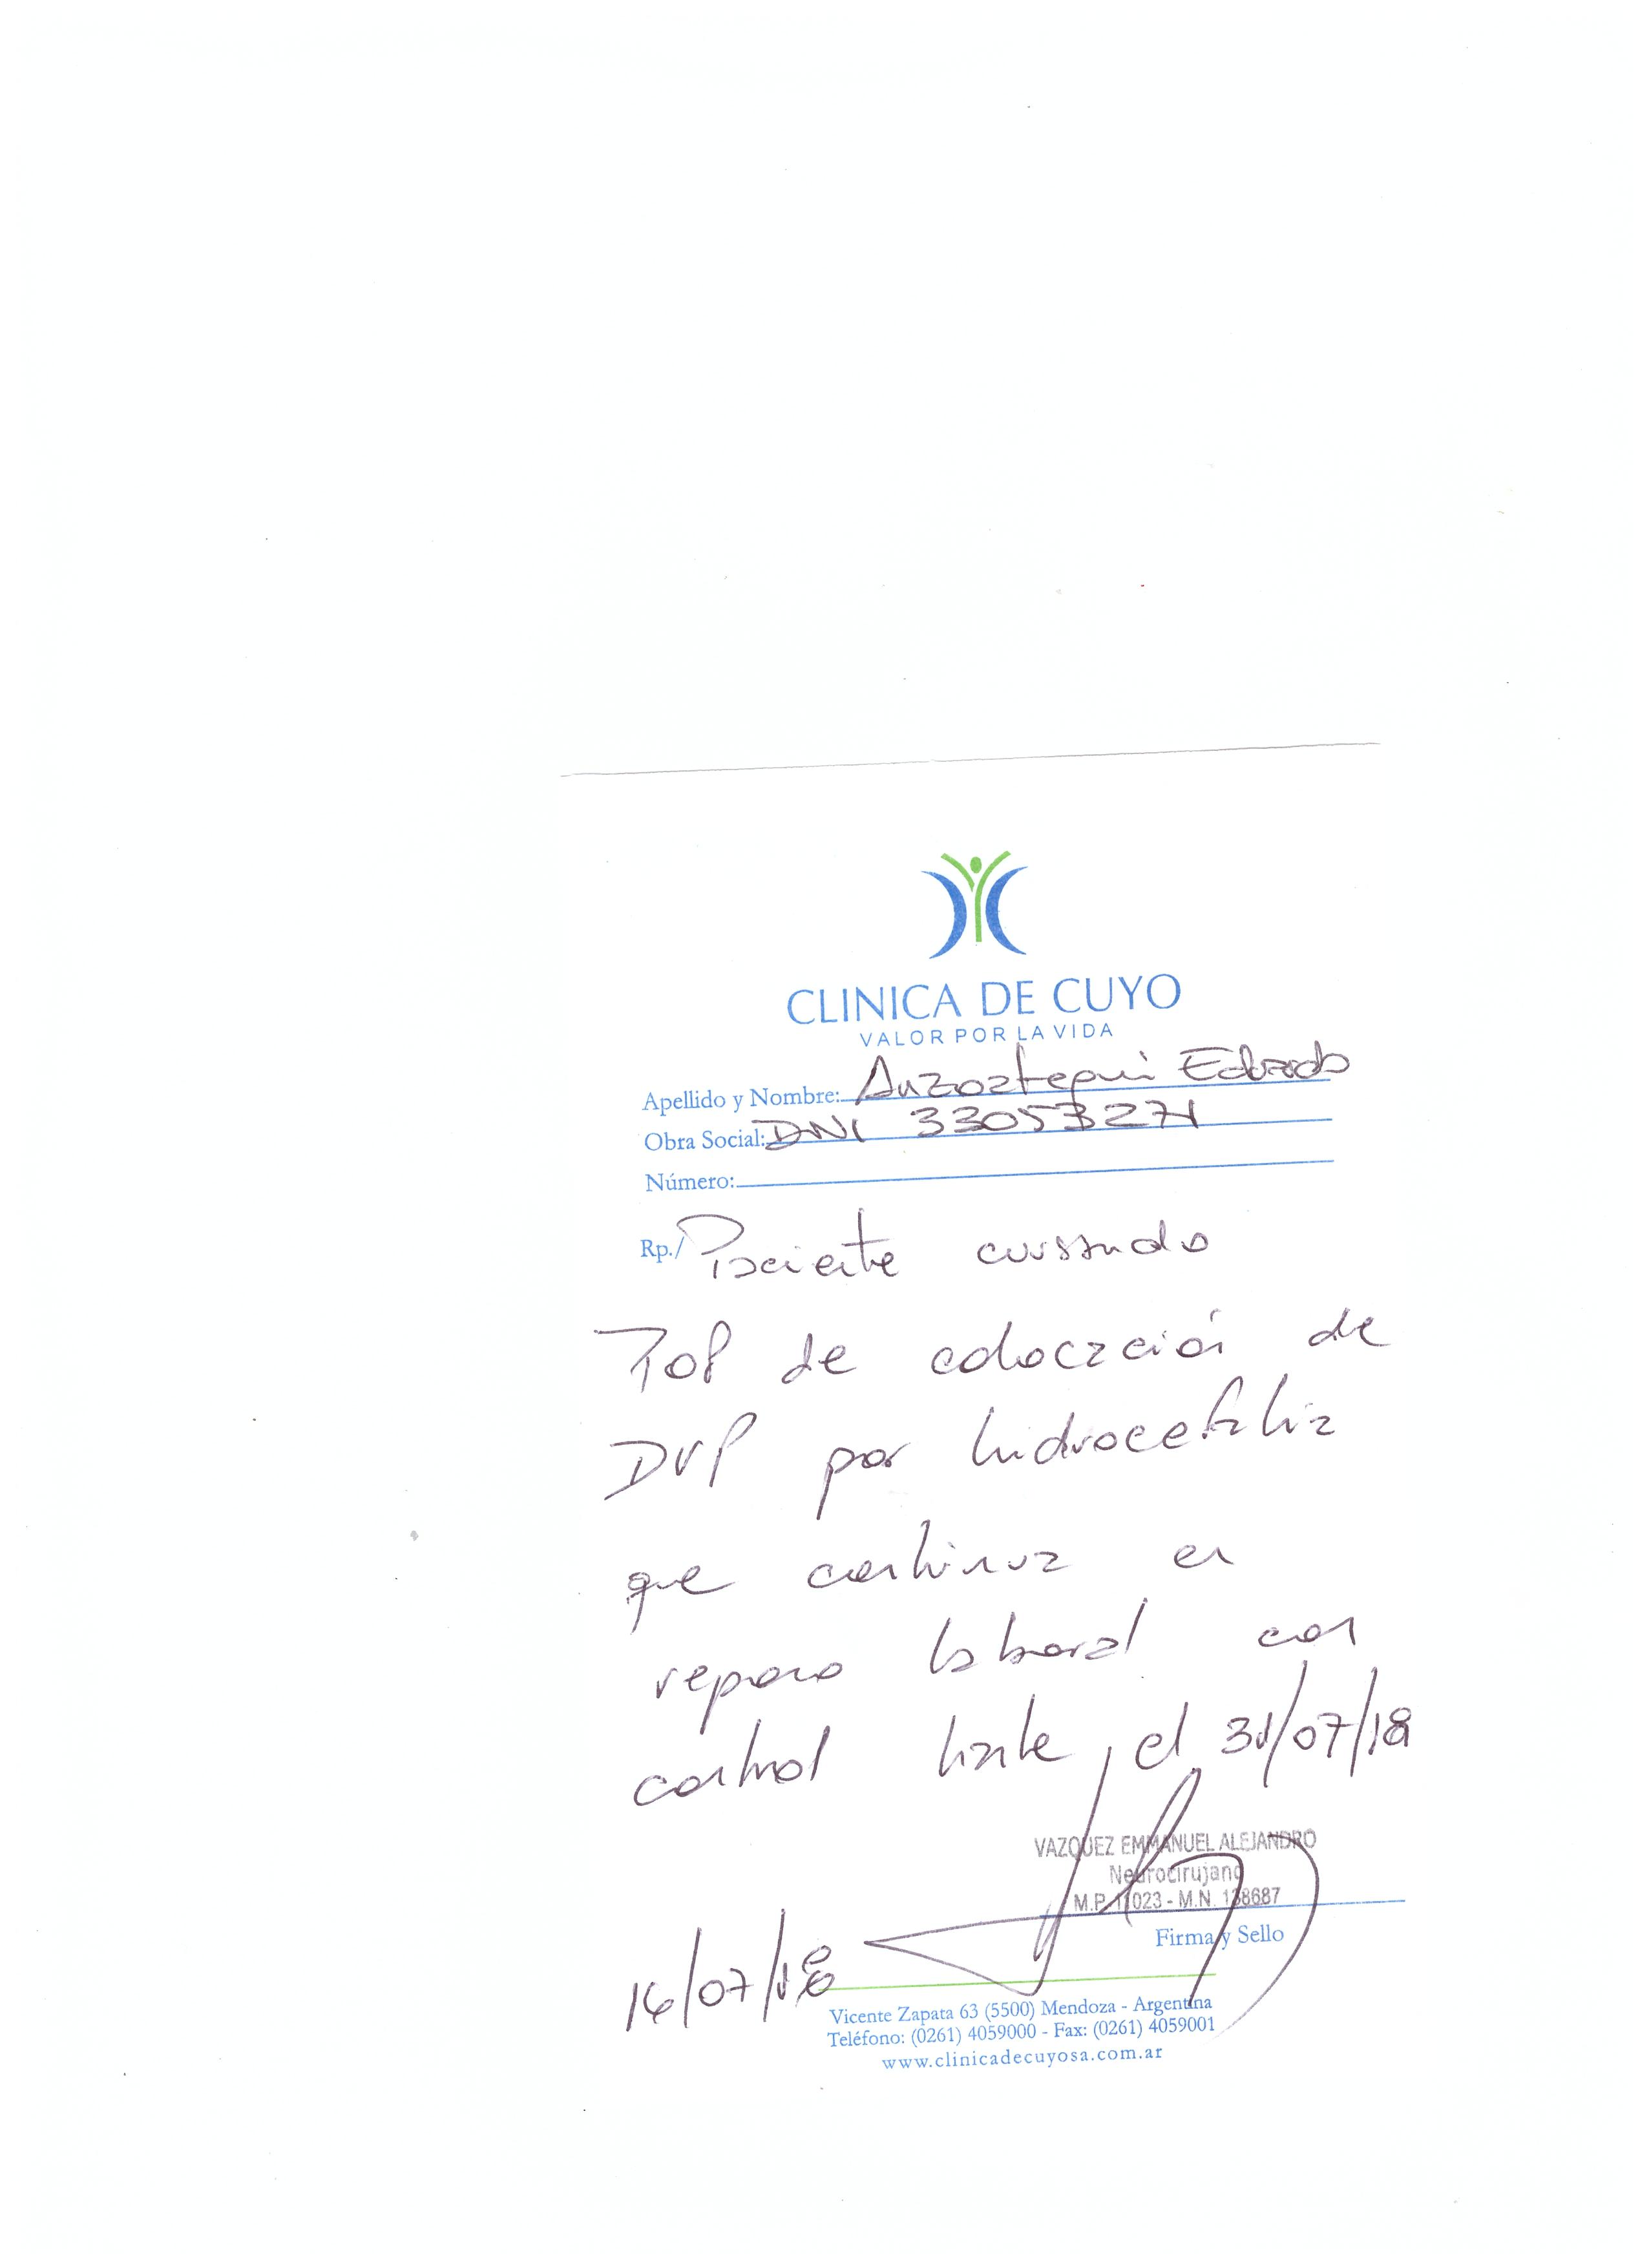 CLINICA DE CUYO
VALOR POR LA VIDA
Apellido y Nombre: Anzoategui Eduardo
Obra Social: DNI 33053271
Número:
Rp./ Paciente cursando
POP de colocación de
DVP por hidrocefalia
que continua en
reposo laboral con
control hasta el 31/07/18
VAZQUEZ EMMANUEL ALEJANDRO
Neurocirujano
M.P. 11023 - M.N. 138687
Firma y Sello
16/07/18
Vicente Zapata 63 (5500) Mendoza - Argentina
Teléfono: (0261) 4059000 - Fax: (0261) 4059001
www.clinicadecuyosa.com.ar